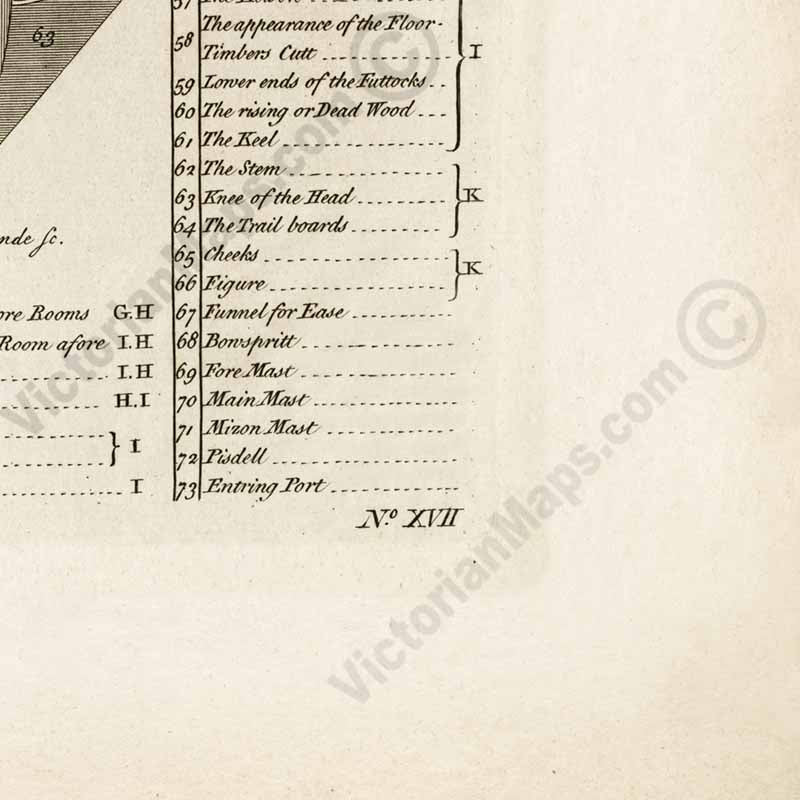 63
58 The appearance of the Floor-
Timbers Cutt I
59 Lower ends of the Futtocks
60 The rising or Dead Wood
61 The Keel
62 The Stem
63 Knee of the Head K
64 The Trail boards
sc.
65 Cheeks K
66 Figure
Rooms G.H 67 Funnel for Ease
Room afore I.H 68 Bowspritt
I.H 69 Fore Mast
H.I 70 Main Mast
I 71 Mizon Mast
72 Pisdell
I 73 Entring Port
N.o XVII
VictorianMaps.com ©
VictorianMaps.com ©